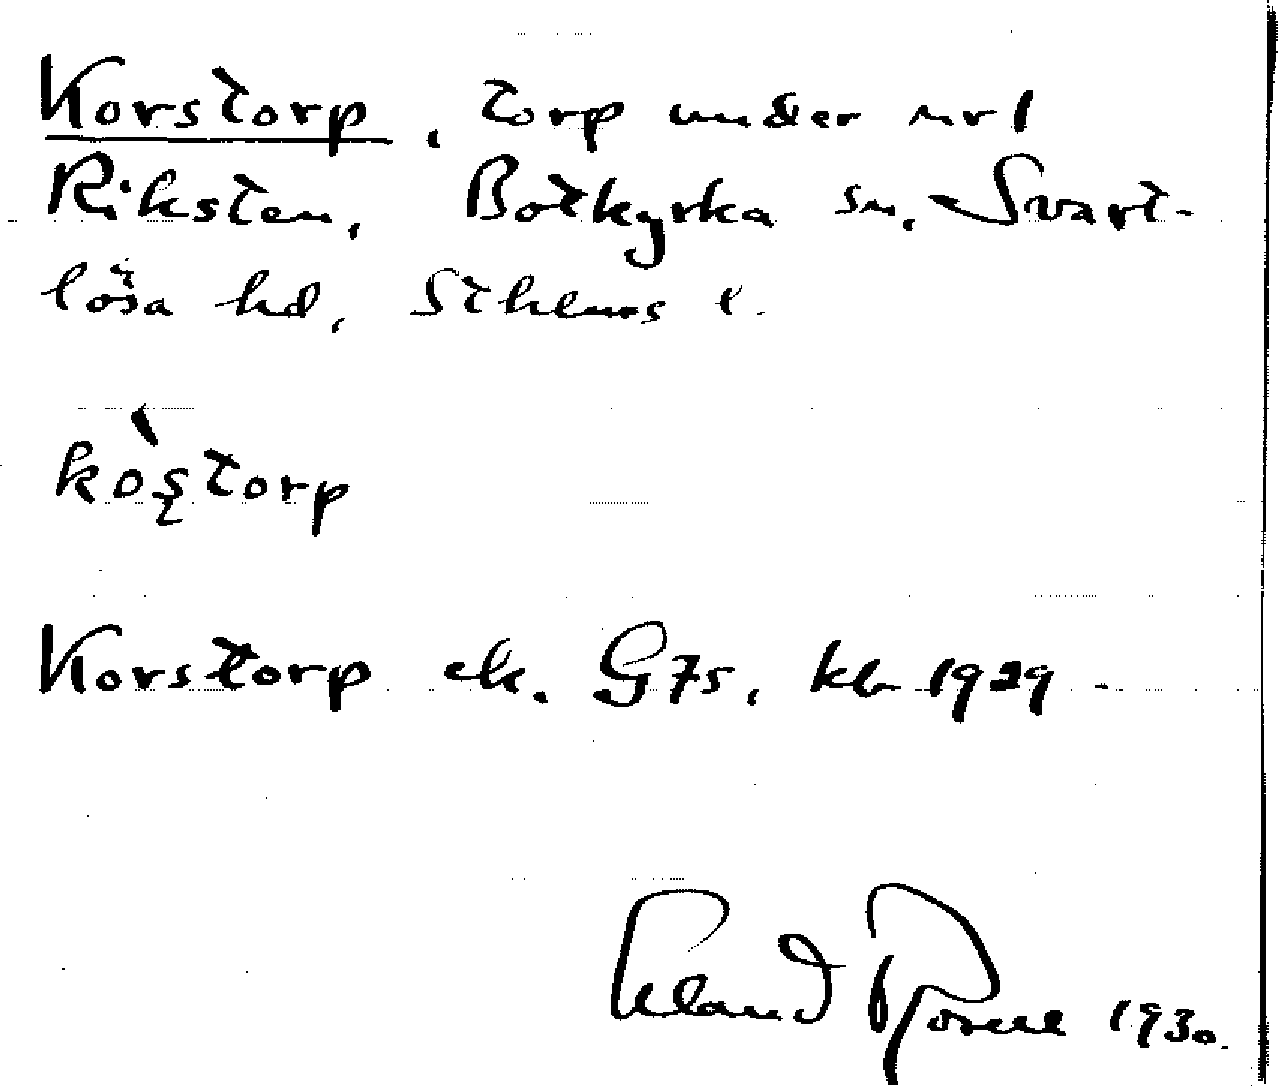 Korstorp, torp under nr 1
Riksten, Botkyrka sn, Svart-
lösa hd, Sthlms l.
kòstorp
Korstorp ek. G7s, kb 1929
1930.